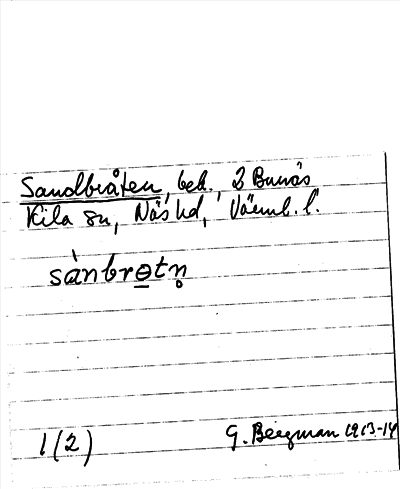 Sandbråten, beb., 2 Bunäs
Kila sn, Näs hd, Värml. l.
sànbrɵtn̥
1(2)
G. Bergman 1913-14